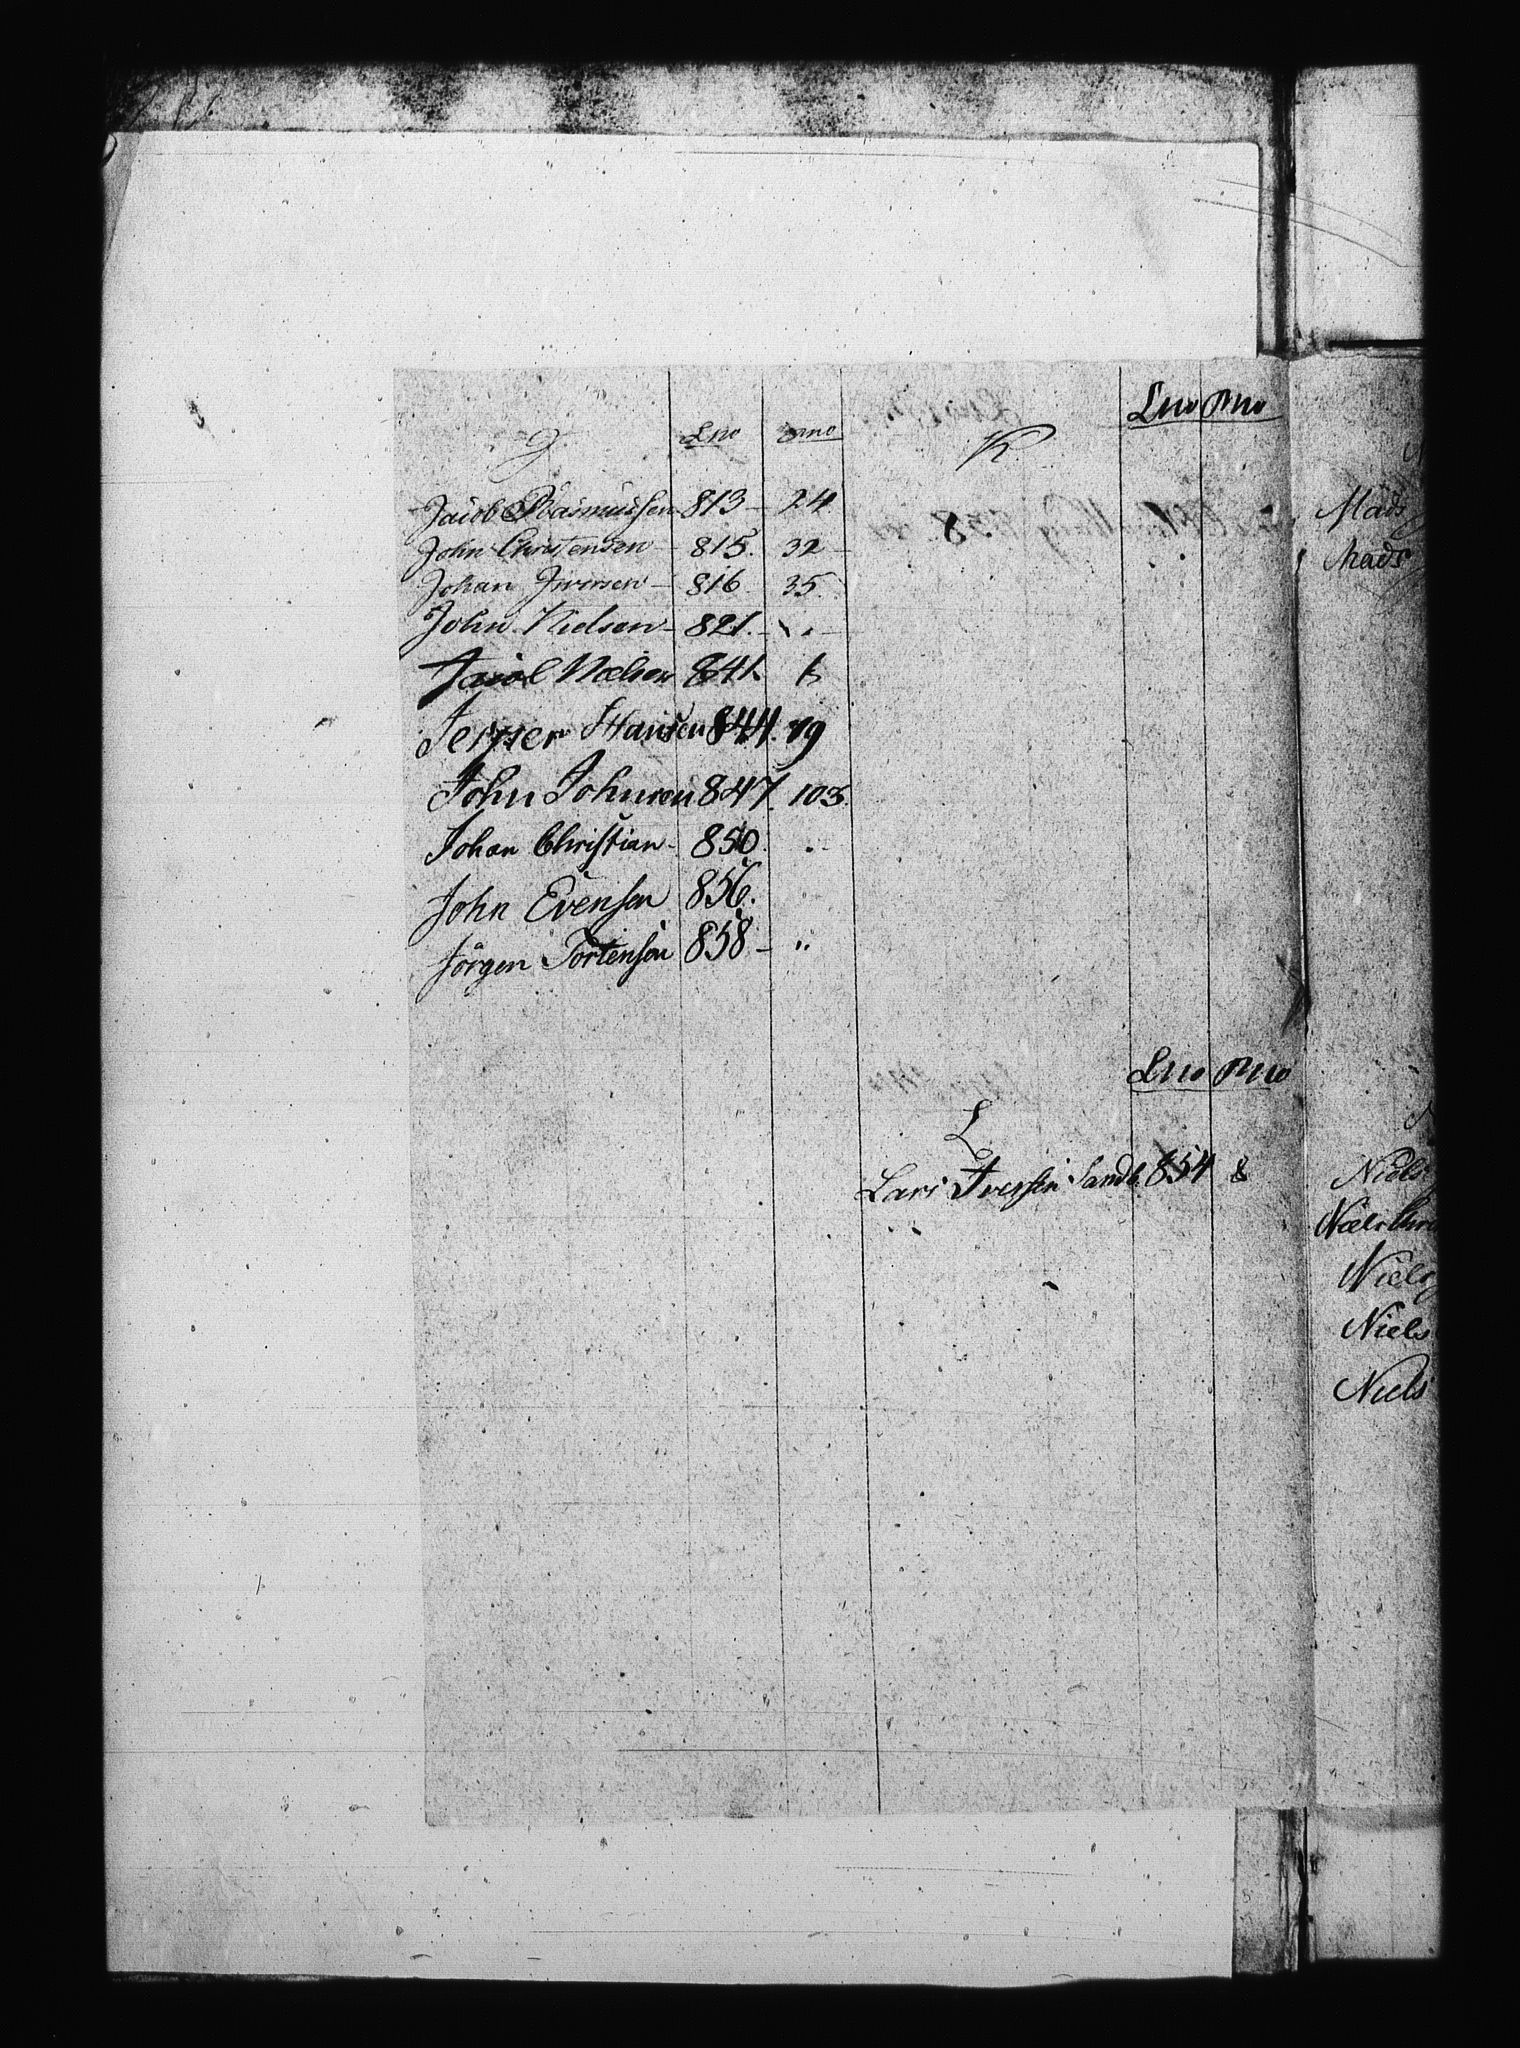 J Lno Pno
Jacob Rasmussen 813 - 24
John Christensen - 815. 32 -
Johan Iversen - 816. 35.
John Nielsen - 821. -
Jacob Nielsen 841.
Jesper Hansen 844. 79
John Johnsen 847. 103.
Johan Christian - 850.
John Evensen 856.
Jörgen Tortensen 858 - "
K Lno Pno
L Lno Pno
Lars Iversen Sandb. 854 8
Mads
Mads
Niels
Niels Chri
Niels
Niels
Niels